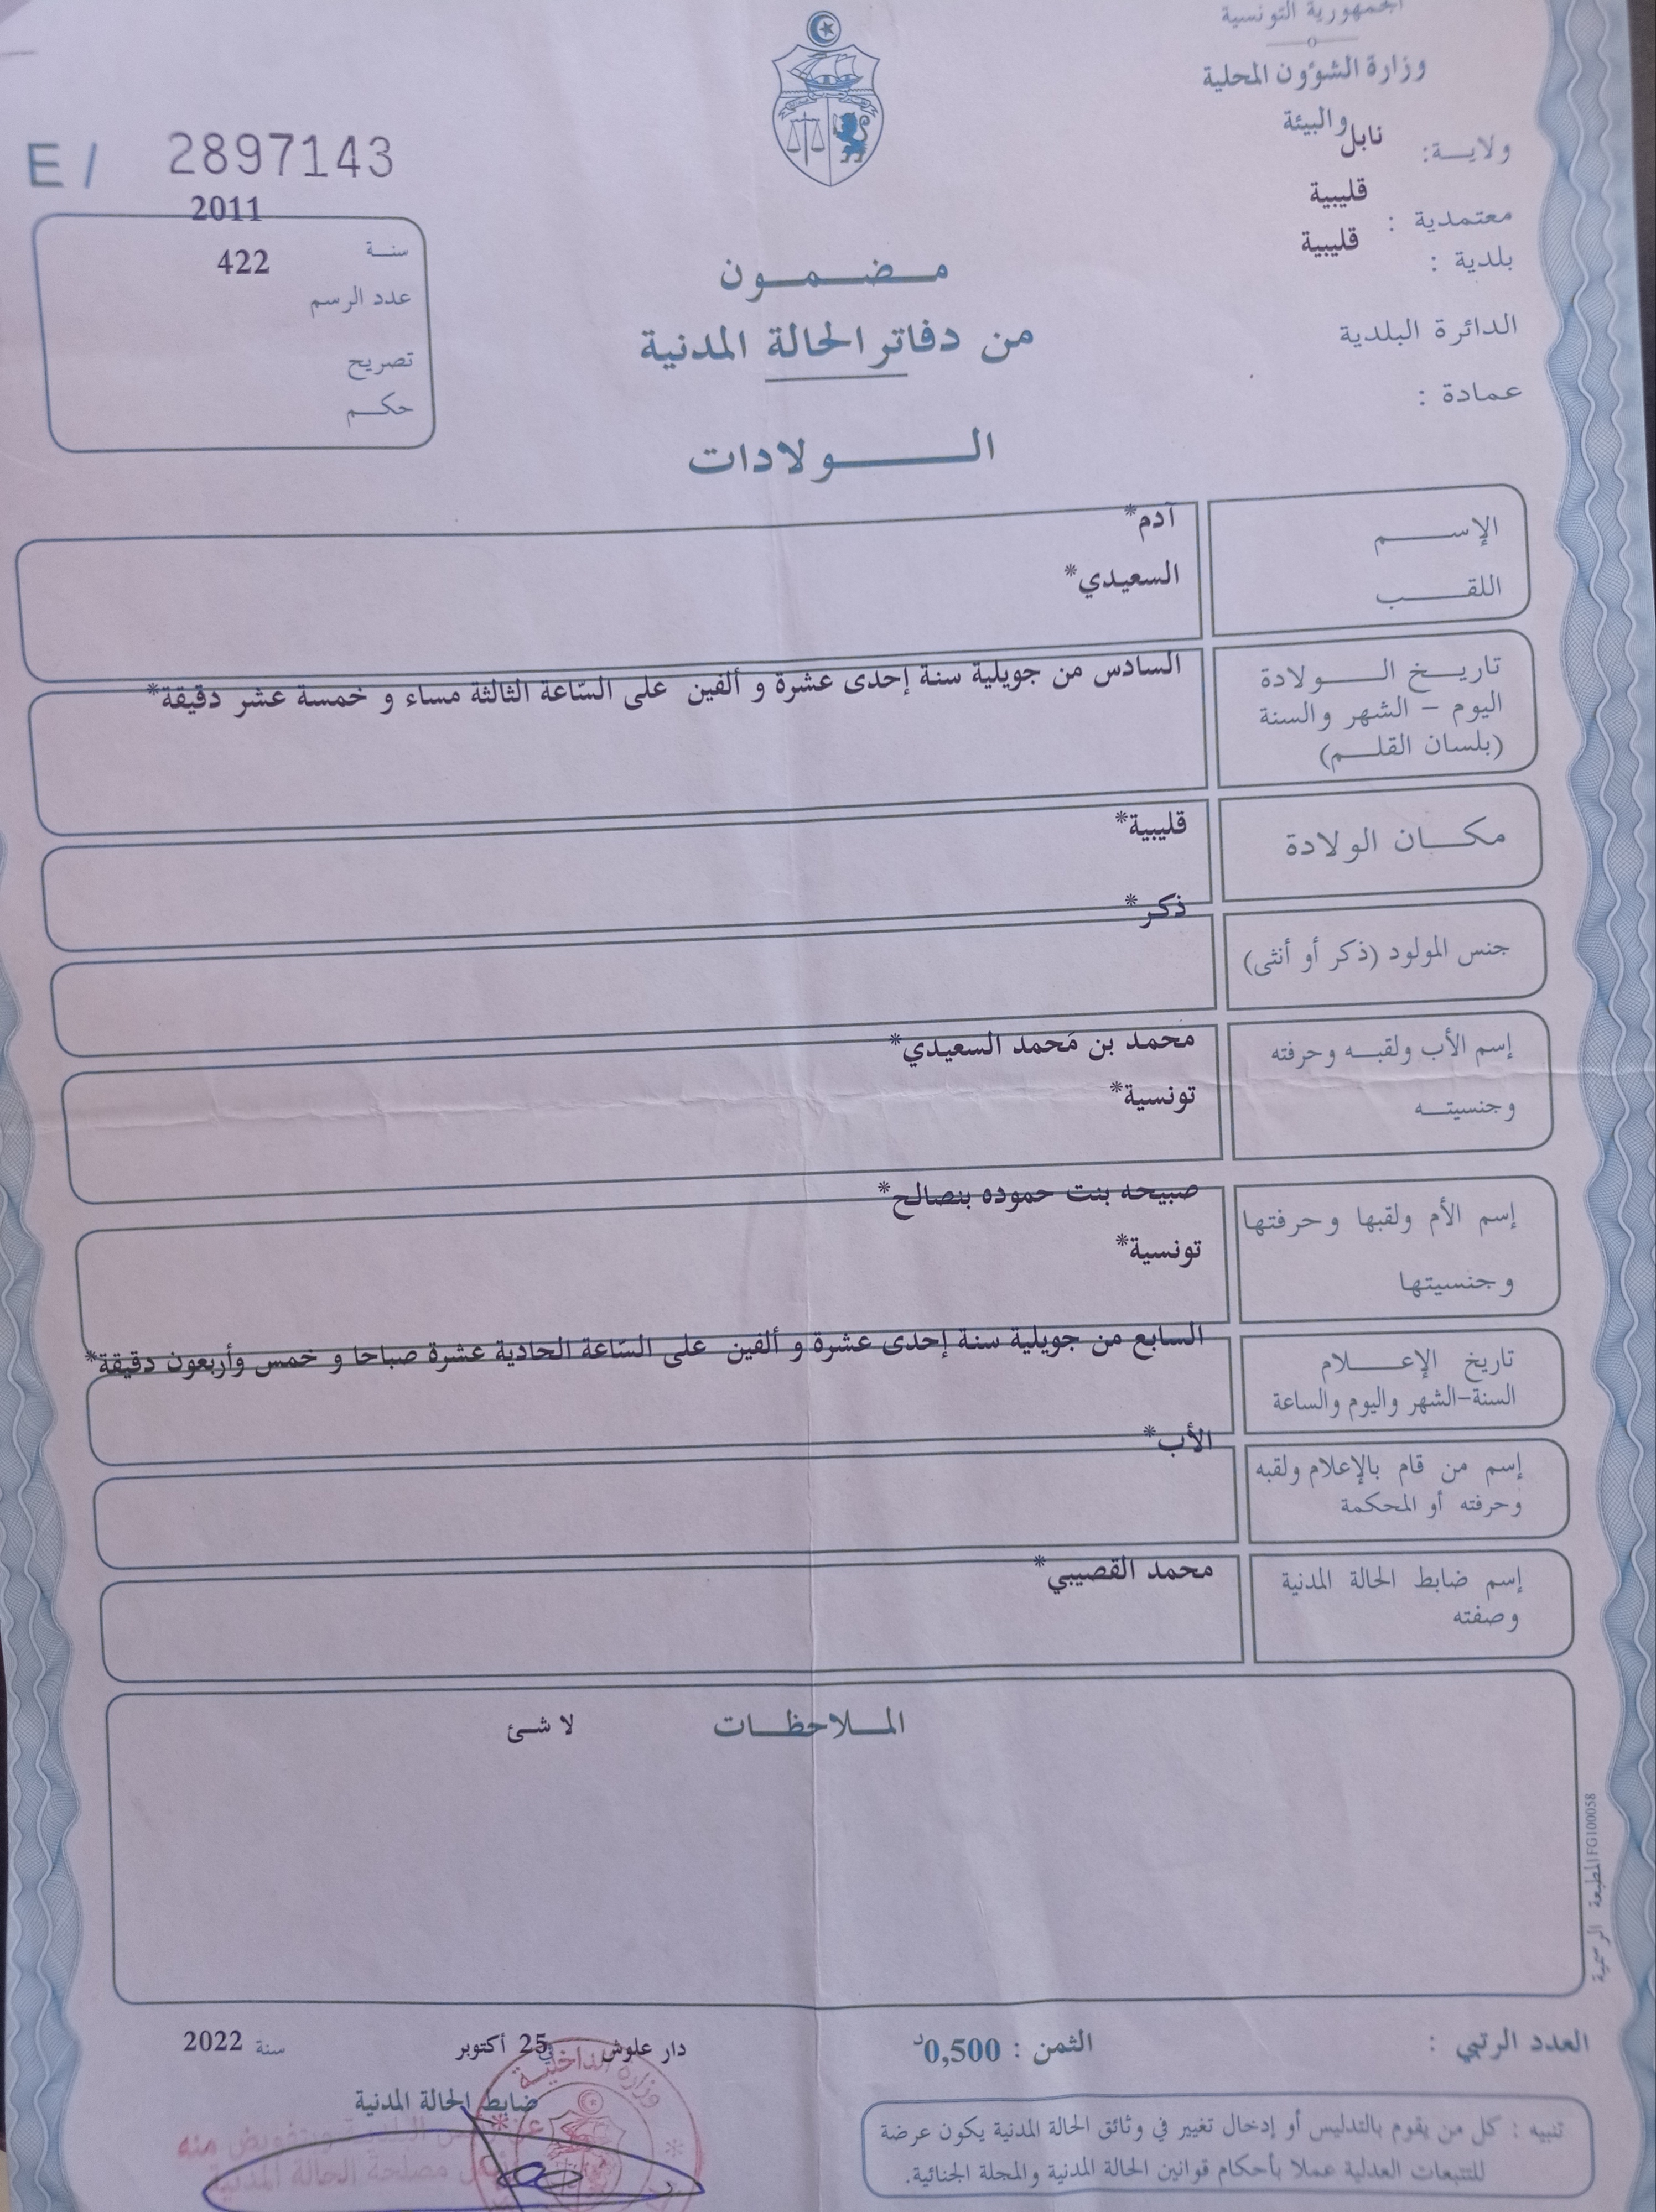 الجمهورية التونسية
وزارة الشؤون المحلية
والبيئة
ولايـــة: نابل
معتمدية : قليبية
بلدية : قليبية
الدائرة البلدية
عمادة :
E / 2897143
سنـــة 2011
عدد الرسم 422
تصريح
حكـــم
مـــضـــمـــون
من دفاتر الحالة المدنية
الـــولادات
الإســـم آدم*
اللقـــب السعيدي*
تاريـــخ الـــولادة
اليوم – الشهر والسنة
(بلسان القلـــم)
السادس من جويلية سنة إحدى عشرة و ألفين على السّاعة الثالثة مساء و خمسة عشر دقيقة*
مكـــان الولادة قليبية*
جنس المولود (ذكر أو أنثى) ذكر*
إسم الأب ولقبـــه وحرفته محمد بن مَحمد السعيدي*
وجنسيتـــه تونسية*
إسم الأم ولقبها وحرفتها صبيحه بنت حموده بنصالح*
وجنسيتها تونسية*
تاريخ الإعـــلام
السنة-الشهر واليوم والساعة
السابع من جويلية سنة إحدى عشرة و ألفين على السّاعة الحادية عشرة صباحا و خمس وأربعون دقيقة*
إسم من قام بالإعلام ولقبه
وحرفته أو المحكمة
الأب*
إسم ضابط الحالة المدنية
وصفته
محمد القصيبي*
المـــلاحظـــات لا شئ
المطبعة الرسمية FG100058
العدد الرتبي :
الثمن : 0,500د
دار علوش في 25 أكتوبر سنة 2022
ضابط الحالة المدنية
وزارة الداخلية
مصلحة الحالة المدنية
تنبيه : كل من يقوم بالتدليس أو إدخال تغيير في وثائق الحالة المدنية يكون عرضة
للتتبعات العدلية عملا بأحكام قوانين الحالة المدنية والمجلة الجنائية.